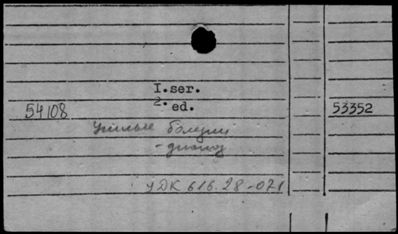 I.ser.
2. ed.
54108 53352
Ушные болезни
- диагноз
УДК 616.28-071